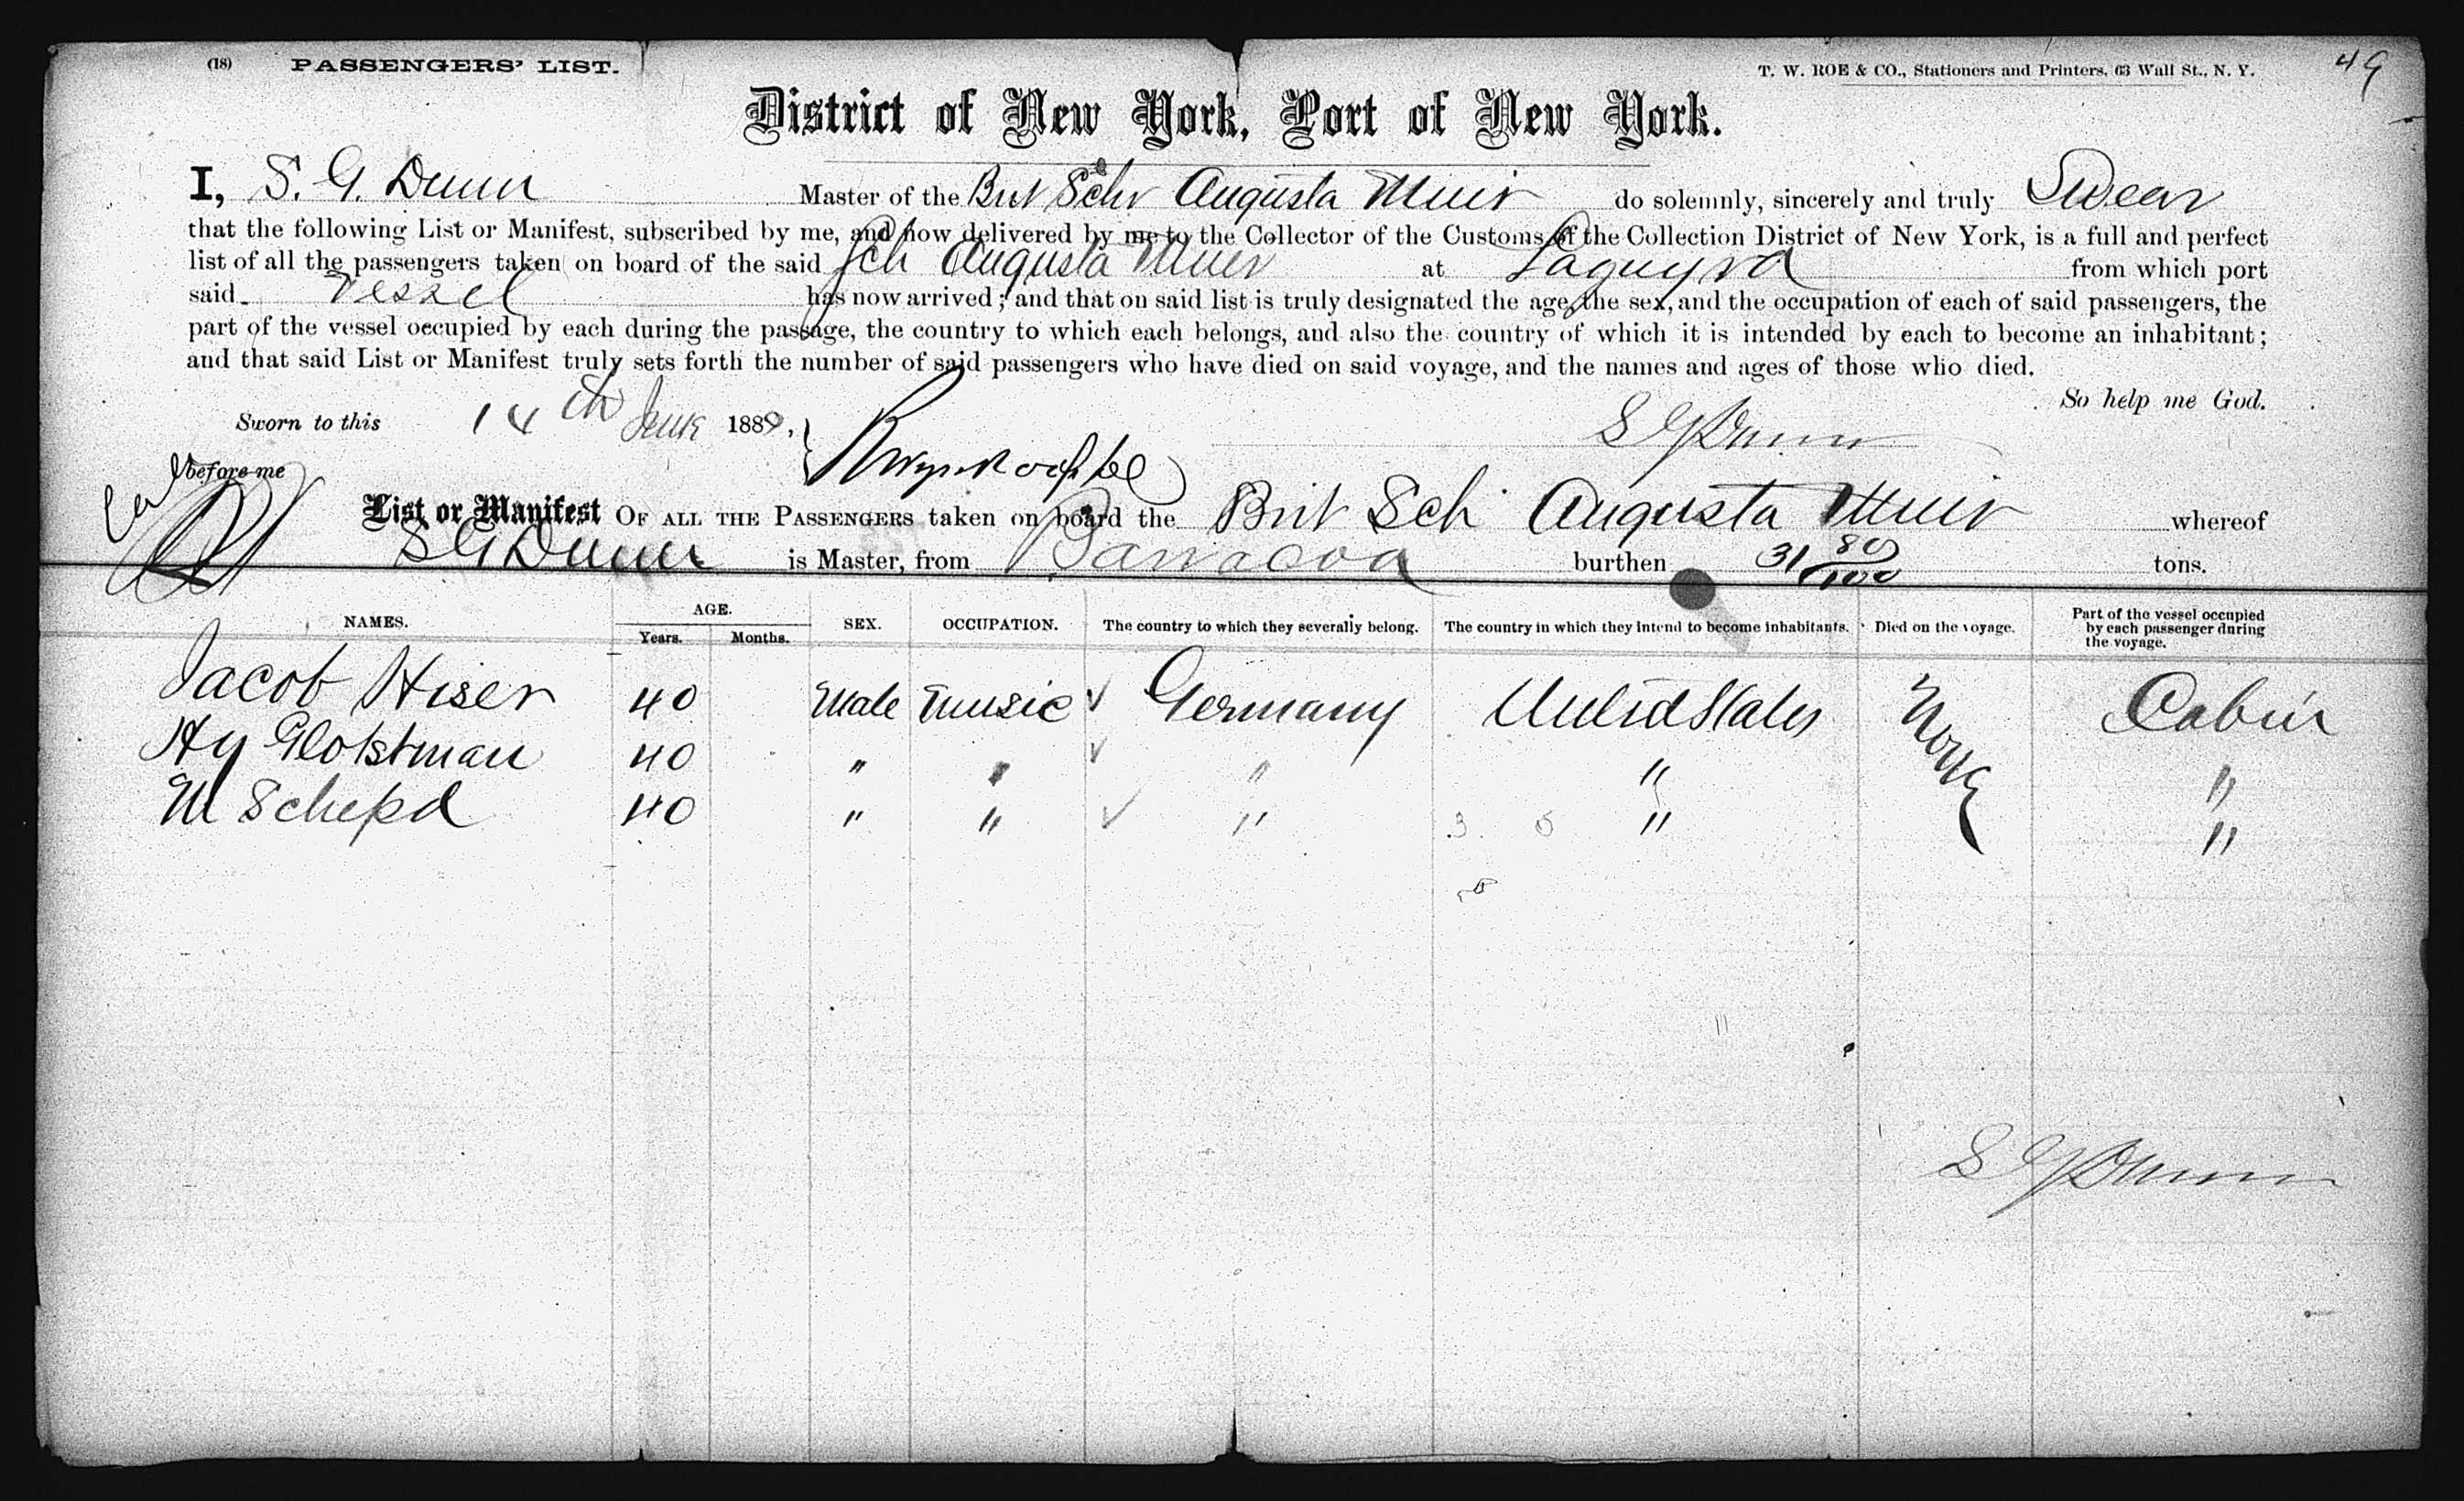 (18) PASSENGERS' LIST.
T. W. ROE & CO., Stationers and Printers, 63 Wall St., N. Y.
49
District of New York, Port of New York.
I, S. G. Dunn Master of the Brit Schr Augusta Muir do solemnly, sincerely and truly Swear
that the following List or Manifest, subscribed by me, and now delivered by me to the Collector of the Customs of the Collection District of New York, is a full and perfect
list of all the passengers taken on board of the said Sch Augusta Muir at Laguyra from which port
said Vessel has now arrived; and that on said list is truly designated the age, the sex, and the occupation of each of said passengers, the
part of the vessel occupied by each during the passage, the country to which each belongs, and also the country of which it is intended by each to become an inhabitant;
and that said List or Manifest truly sets forth the number of said passengers who have died on said voyage, and the names and ages of those who died.
So help me God.
Sworn to this 14th June 1889,
S G Dunn
before me
List or Manifest OF ALL THE PASSENGERS taken on board the Brit Sch Augusta Muir whereof
S G Dunn is Master, from Barracoa burthen 31 80/100 tons.
NAMES. AGE. Years. Months. SEX. OCCUPATION. The country to which they severally belong. The country in which they intend to become inhabitants. Died on the voyage. Part of the vessel occupied by each passenger during the voyage.
Jacob Hiser 40 Male Music Germany United States None Cabin
Hy Glotstman 40 " " " " "
M Schepd 40 " " " " "
S G Dunn